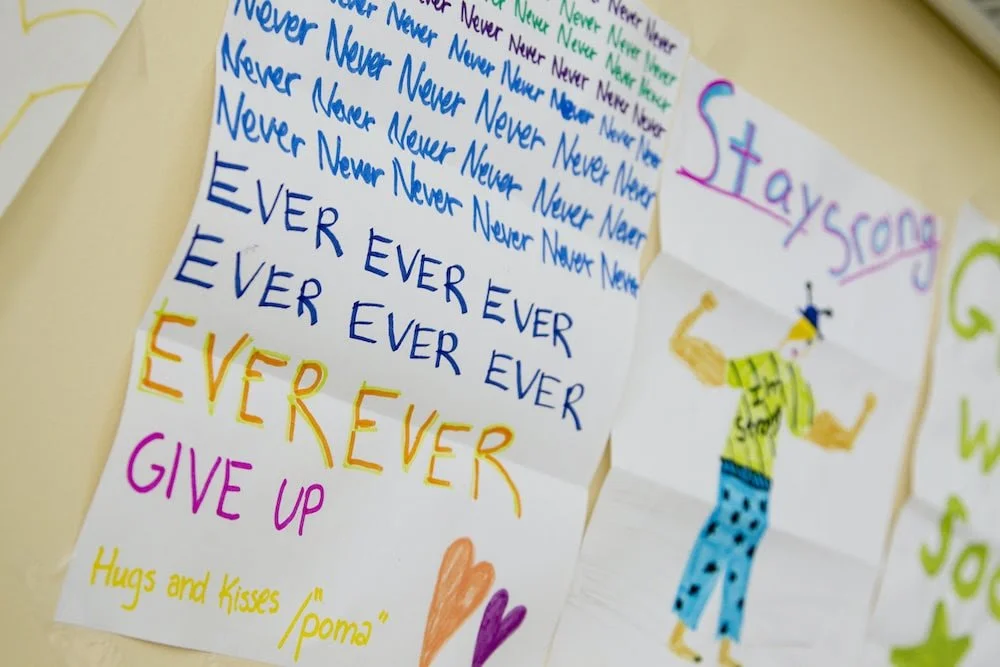 Never Never
Never Never Never Never
Never Never Never Never Never
Never Never Never Never Never Never
Never Never Never Never Never Never
Never Never Never Never Never Never
Never Never Never Never Never Never
Never Never Never Never Never Never
EVER EVER EVER
EVER EVER EVER
EVER EVER
GIVE UP
Hugs and Kisses /"poma"
Stay srong
I'm
strong